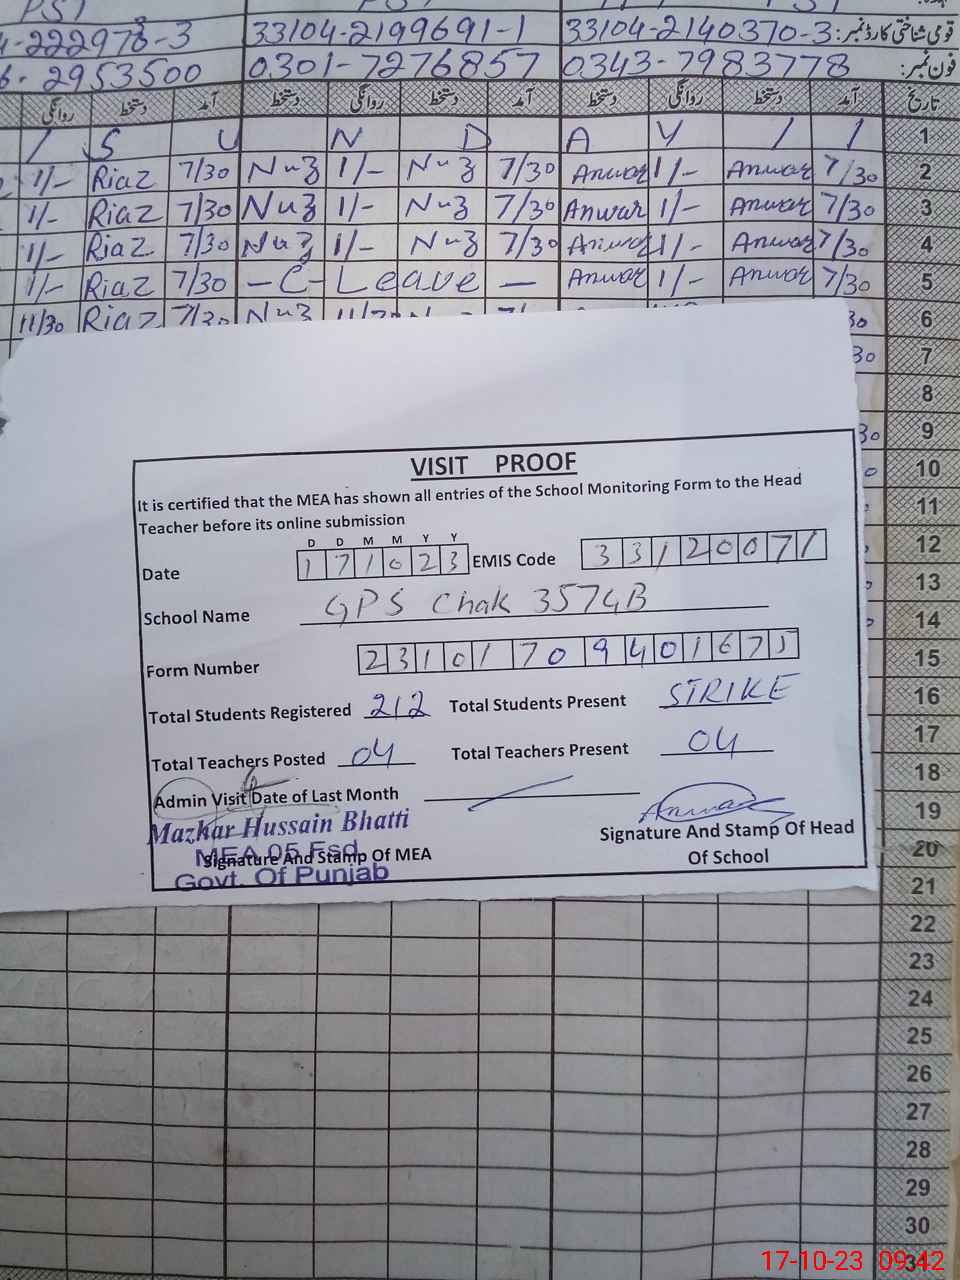 PST
33104-2199691-1 33104-2140370-3 قومی شناختی کارڈ نمبر:
2953500 0301-7276857 0343-7983778 فون نمبر:
روانگی دستخط آمد دستخط روانگی دستخط آمد دستخط روانگی دستخط آمد تاریخ
/ S U N D A Y / / 1
1/- Riaz 7/30 Nuz 1/- Nuz 7/30 Anwar 1/- Anwar 7/30 2
1/- Riaz 7/30 Nuz 1/- Nuz 7/30 Anwar 1/- Anwar 7/30 3
1/- Riaz 7/30 Nuz 1/- Nuz 7/30 Anwar 1/- Anwar 7/30 4
1/- Riaz 7/30 -C-Leave- Anwar 1/- Anwar 7/30 5
11/30 Riaz 7/30 Nuz 6
7
8
9
10
11
12
13
14
15
16
17
18
19
20
21
22
23
24
25
26
27
28
29
30
VISIT PROOF
It is certified that the MEA has shown all entries of the School Monitoring Form to the Head
Teacher before its online submission
D D M M Y Y
Date 171023 EMIS Code 33120071
School Name GPS Chak 357GB
Form Number 23101709401675
Total Students Registered 212 Total Students Present STRIKE
Total Teachers Posted 04 Total Teachers Present 04
Admin Visit Date of Last Month
Mazhar Hussain Bhatti
MEA 05 Fsd
Govt. Of Punjab
Signature And Stamp Of MEA
Anwar
Signature And Stamp Of Head
Of School
17-10-23 09:42